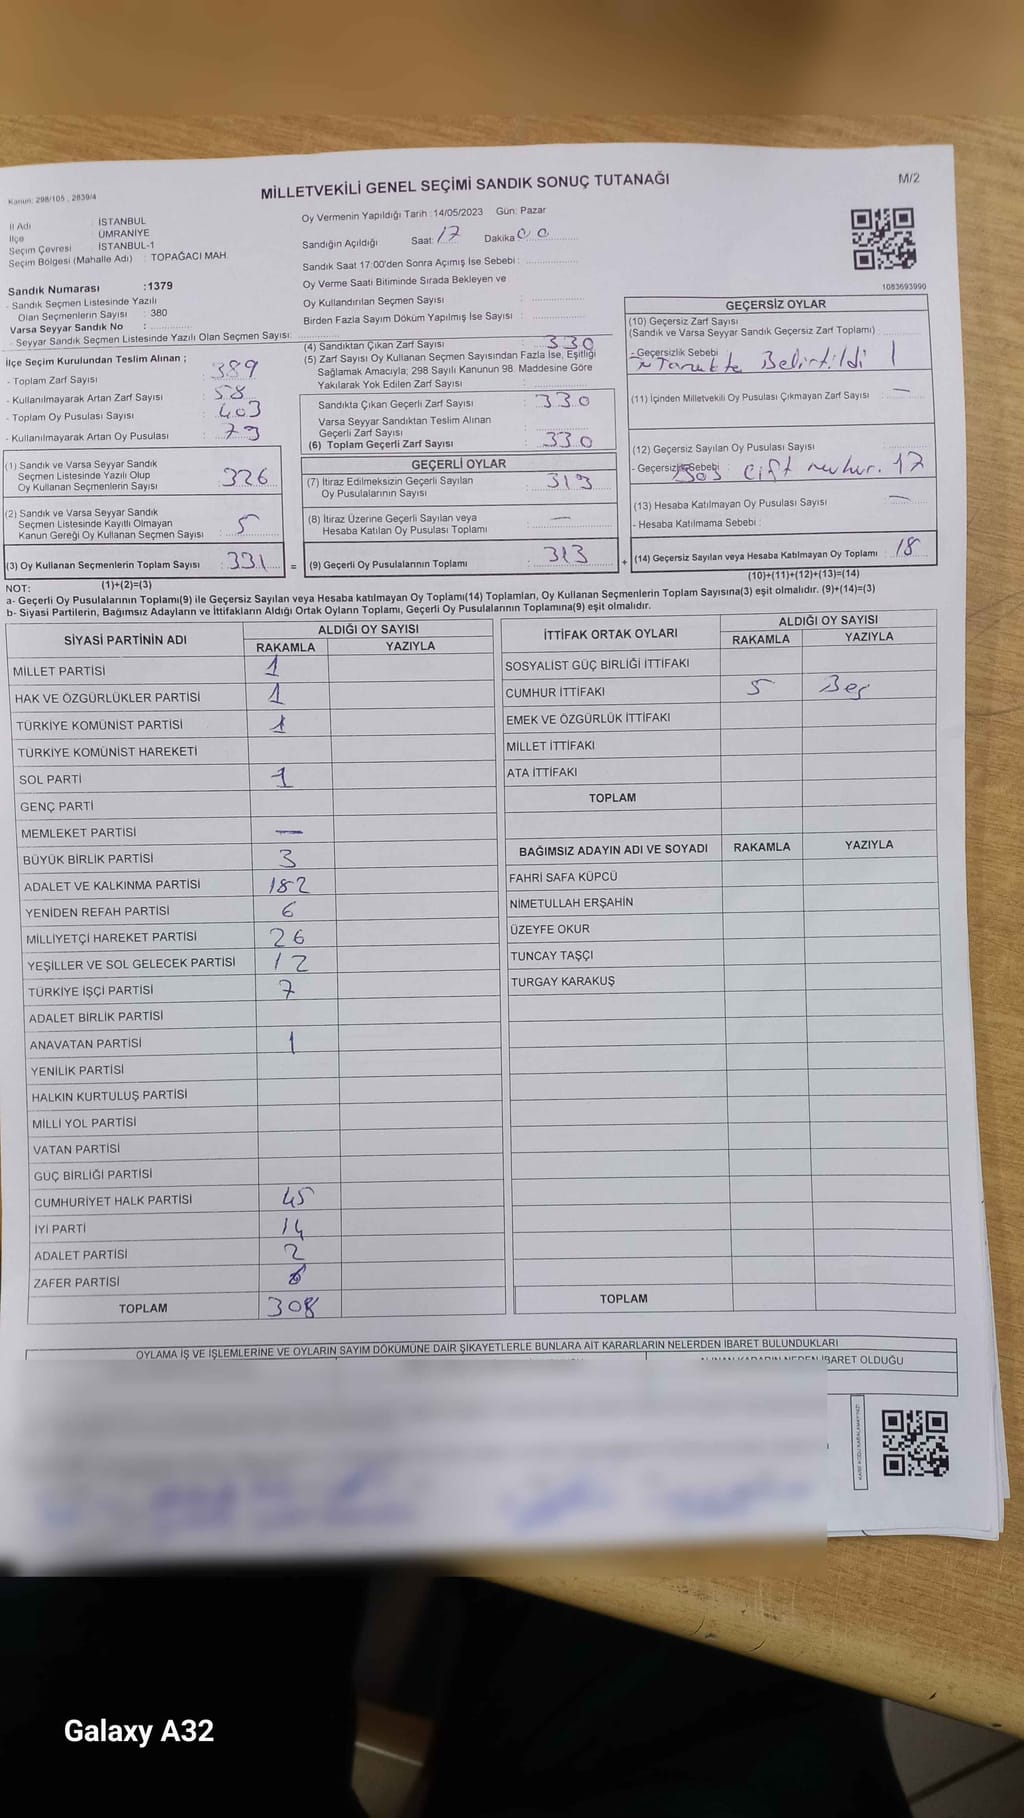 Kanun: 298/105 , 2839/4
MİLLETVEKİLİ GENEL SEÇİMİ SANDIK SONUÇ TUTANAĞI
M/2
İl Adı : İSTANBUL
İlçe : ÜMRANİYE
Seçim Çevresi : İSTANBUL-1
Seçim Bölgesi (Mahalle Adı) : TOPAĞACI MAH.
Sandık Numarası :1379
- Sandık Seçmen Listesinde Yazılı
Olan Seçmenlerin Sayısı : 380
Varsa Seyyar Sandık No :
- Seyyar Sandık Seçmen Listesinde Yazılı Olan Seçmen Sayısı:
Oy Vermenin Yapıldığı Tarih :14/05/2023 Gün: Pazar
Sandığın Açıldığı Saat: 17 Dakika 00
Sandık Saat 17:00'den Sonra Açımış İse Sebebi :
Oy Verme Saati Bitiminde Sırada Bekleyen ve
Oy Kullandırılan Seçmen Sayısı :
Birden Fazla Sayım Döküm Yapılmış İse Sayısı :
1083693990
İlçe Seçim Kurulundan Teslim Alınan ;
- Toplam Zarf Sayısı : 389
- Kullanılmayarak Artan Zarf Sayısı : 58
- Toplam Oy Pusulası Sayısı : 403
- Kullanılmayarak Artan Oy Pusulası : 73
(1) Sandık ve Varsa Seyyar Sandık
Seçmen Listesinde Yazılı Olup
Oy Kullanan Seçmenlerin Sayısı : 326
(2) Sandık ve Varsa Seyyar Sandık
Seçmen Listesinde Kayıtlı Olmayan
Kanun Gereği Oy Kullanan Seçmen Sayısı : 5
(3) Oy Kullanan Seçmenlerin Toplam Sayısı : 331 =
(4) Sandıktan Çıkan Zarf Sayısı : 330
(5) Zarf Sayısı Oy Kullanan Seçmen Sayısından Fazla İse, Eşitliği
Sağlamak Amacıyla; 298 Sayılı Kanunun 98. Maddesine Göre
Yakılarak Yok Edilen Zarf Sayısı :
Sandıkta Çıkan Geçerli Zarf Sayısı : 330
Varsa Seyyar Sandıktan Teslim Alınan
Geçerli Zarf Sayısı :
(6) Toplam Geçerli Zarf Sayısı : 330
GEÇERLİ OYLAR
(7) İtiraz Edilmeksizin Geçerli Sayılan
Oy Pusulalarının Sayısı : 313
(8) İtiraz Üzerine Geçerli Sayılan veya
Hesaba Katılan Oy Pusulası Toplamı : —
(9) Geçerli Oy Pusulalarının Toplamı : 313 +
GEÇERSİZ OYLAR
(10) Geçersiz Zarf Sayısı
(Sandık ve Varsa Seyyar Sandık Geçersiz Zarf Toplamı) :
- Geçersizlik Sebebi : Tarukte Belirtildi 1
(11) İçinden Milletvekili Oy Pusulası Çıkmayan Zarf Sayısı : —
(12) Geçersiz Sayılan Oy Pusulası Sayısı :
- Geçersizlik Sebebi : Boş çift muhur. 17
(13) Hesaba Katılmayan Oy Pusulası Sayısı : —
- Hesaba Katılmama Sebebi :
(14) Geçersiz Sayılan veya Hesaba Katılmayan Oy Toplamı : 18
NOT: (1)+(2)=(3)
(10)+(11)+(12)+(13)=(14)
a- Geçerli Oy Pusulalarının Toplamı(9) ile Geçersiz Sayılan veya Hesaba katılmayan Oy Toplamı(14) Toplamları, Oy Kullanan Seçmenlerin Toplam Sayısına(3) eşit olmalıdır. (9)+(14)=(3)
b- Siyasi Partilerin, Bağımsız Adayların ve İttifakların Aldığı Ortak Oyların Toplamı, Geçerli Oy Pusulalarının Toplamına(9) eşit olmalıdır.
SİYASİ PARTİNİN ADI ALDIĞI OY SAYISI
RAKAMLA YAZIYLA
MİLLET PARTİSİ 1
HAK VE ÖZGÜRLÜKLER PARTİSİ 1
TÜRKİYE KOMÜNİST PARTİSİ 1
TÜRKİYE KOMÜNİST HAREKETİ
SOL PARTİ 1
GENÇ PARTİ
MEMLEKET PARTİSİ —
BÜYÜK BİRLİK PARTİSİ 3
ADALET VE KALKINMA PARTİSİ 182
YENİDEN REFAH PARTİSİ 6
MİLLİYETÇİ HAREKET PARTİSİ 26
YEŞİLLER VE SOL GELECEK PARTİSİ 12
TÜRKİYE İŞÇİ PARTİSİ 7
ADALET BİRLİK PARTİSİ
ANAVATAN PARTİSİ 1
YENİLİK PARTİSİ
HALKIN KURTULUŞ PARTİSİ
MİLLİ YOL PARTİSİ
VATAN PARTİSİ
GÜÇ BİRLİĞİ PARTİSİ
CUMHURİYET HALK PARTİSİ 45
İYİ PARTİ 14
ADALET PARTİSİ 2
ZAFER PARTİSİ 6
TOPLAM 308
İTTİFAK ORTAK OYLARI ALDIĞI OY SAYISI
RAKAMLA YAZIYLA
SOSYALİST GÜÇ BİRLİĞİ İTTİFAKI
CUMHUR İTTİFAKI 5 Beş
EMEK VE ÖZGÜRLÜK İTTİFAKI
MİLLET İTTİFAKI
ATA İTTİFAKI
TOPLAM
BAĞIMSIZ ADAYIN ADI VE SOYADI RAKAMLA YAZIYLA
FAHRİ SAFA KÜPCÜ
NİMETULLAH ERŞAHİN
ÜZEYFE OKUR
TUNCAY TAŞÇI
TURGAY KARAKUŞ
TOPLAM
OYLAMA İŞ VE İŞLEMLERİNE VE OYLARIN SAYIM DÖKÜMÜNE DAİR ŞİKAYETLERLE BUNLARA AİT KARARLARIN NELERDEN İBARET BULUNDUKLARI
İBARET OLDUĞU
Galaxy A32